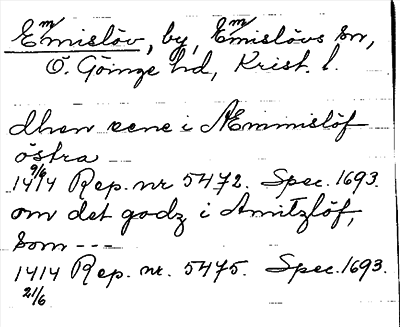 Emmislöv, by, Emmislövs sn,
Ö. Göinge hd, Krist. l.
dhen rene i Æmmislöf
östra
9/6
1414 Rep. nr 5472. Spec. 1693.
om det godz i Amitzlöf,
som ---
1414 Rep. nr. 5475. Spec. 1693.
21/6